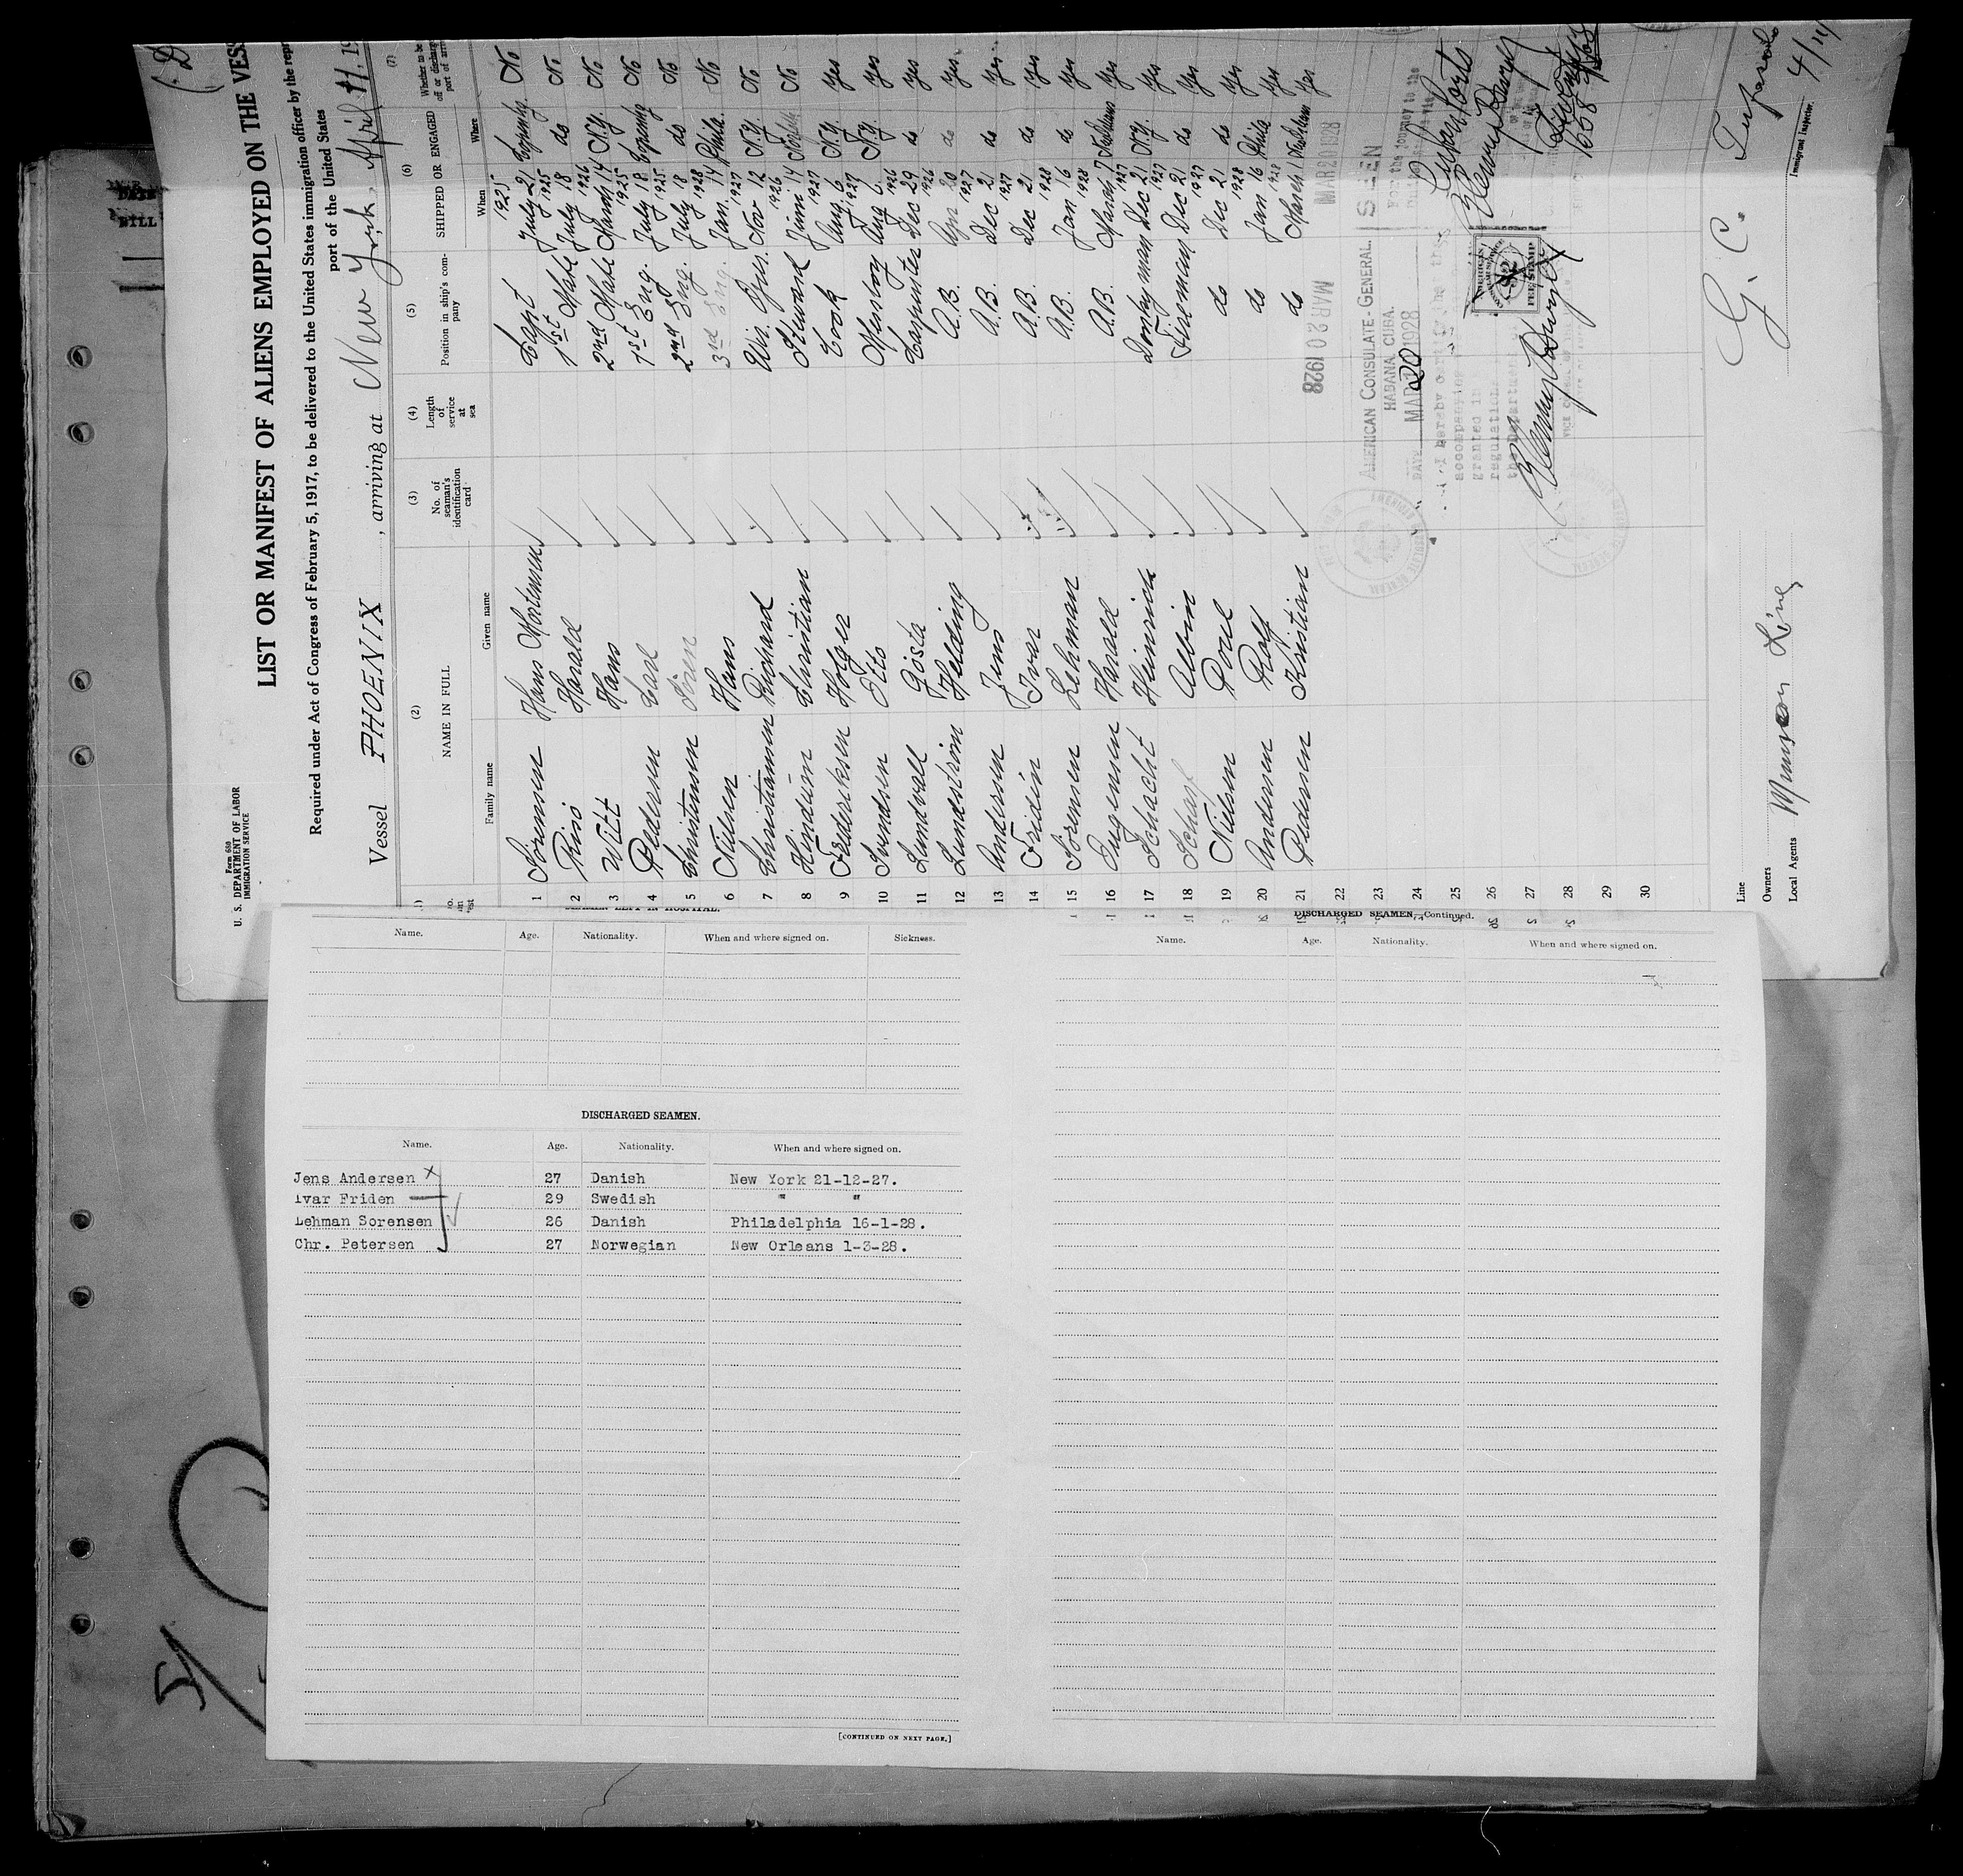 Form 680
U. S. DEPARTMENT OF LABOR
IMMIGRATION SERVICE
LIST OR MANIFEST OF ALIENS EMPLOYED ON THE VESS
Required under Act of Congress of February 5, 1917, to be delivered to the United States immigration officer by the repr
port of the United States
Vessel PHOENIX, arriving at New York, April 11, 19
(2) (3) (4) (5) (6) (7)
NAME IN FULL No. of seaman's identification card Length of service at sea Position in ship's company SHIPPED OR ENGAGED Whether to be
Family name Given name When Where
1 Sörensen Hans Mortensen Capt 1925 July 21 No
2 Riisö Harald 1st Mate July 18 1925 do No
3 Witt Hans 2nd Mate March 14 1926 N.Y. No
4 Pedersen Carl 1st Eng. July 18 1925 No
5 Christensen Sören 2nd Eng. July 18 1925 do No
6 Nielsen Hans 3rd Eng. Jan. 14 1928 Phila. No
7 Christiansen Richard Wir. Oper. Nov 12 1927 N.Y. No
8 Christian Steward 14 1926 No
9 Frederiksen Holger Cook Aug 6 1927 N.Y. Yes
10 Svendsen Otto Messboy Aug 6 1927 N.Y. Yes
11 Lundvall Gösta Carpenter Dec 29 1926 do Yes
12 Lundström Helding A.B. Apr 20 1926 do Yes
13 Andersen Jens A.B. Dec 21 1927 do Yes
14 Fridén Ivar A.B. Dec 21 1927 do Yes
15 Sörensen Lehman A.B. Jan 16 1928 do Yes
16 Eugensen Harald A.B. March 7 1928 Yes
17 Schacht Heinrich Donkeyman Dec 21 1927 N.Y. Yes
18 Scharf Albin Fireman Dec 21 1927 do Yes
19 Nielsen Poul do Dec 21 1927 do Yes
20 Andersen Rolf do Jan 16 1928 Phila Yes
21 Pedersen Kristian do March 1 1928 Yes
22
23
24
25
26
27
28
29
30
MAR 20 1928
MAR 20 1928
AMERICAN CONSULATE-GENERAL.
HABANA, CUBA.
DATE MAR 20 1928
SEEN
For the journey to the
I hereby certify that
accompanying
granted in
regulations
the Department
FEE STAMP
Line
Owners
Local Agents Munson Line
G. C.
Immigrant Inspector.
4/11/
SEAMEN LEFT IN HOSPITAL.
Name. Age. Nationality. When and where signed on. Sickness.
DISCHARGED SEAMEN.
Name. Age. Nationality. When and where signed on.
Jens Andersen 27 Danish New York 21-12-27.
Ivar Friden 29 Swedish " "
Lehman Sorensen 26 Danish Philadelphia 16-1-28.
Chr. Petersen 27 Norwegian New Orleans 1-3-28.
[CONTINUED ON NEXT PAGE.]
DISCHARGED SEAMEN—Continued.
Name. Age. Nationality. When and where signed on.